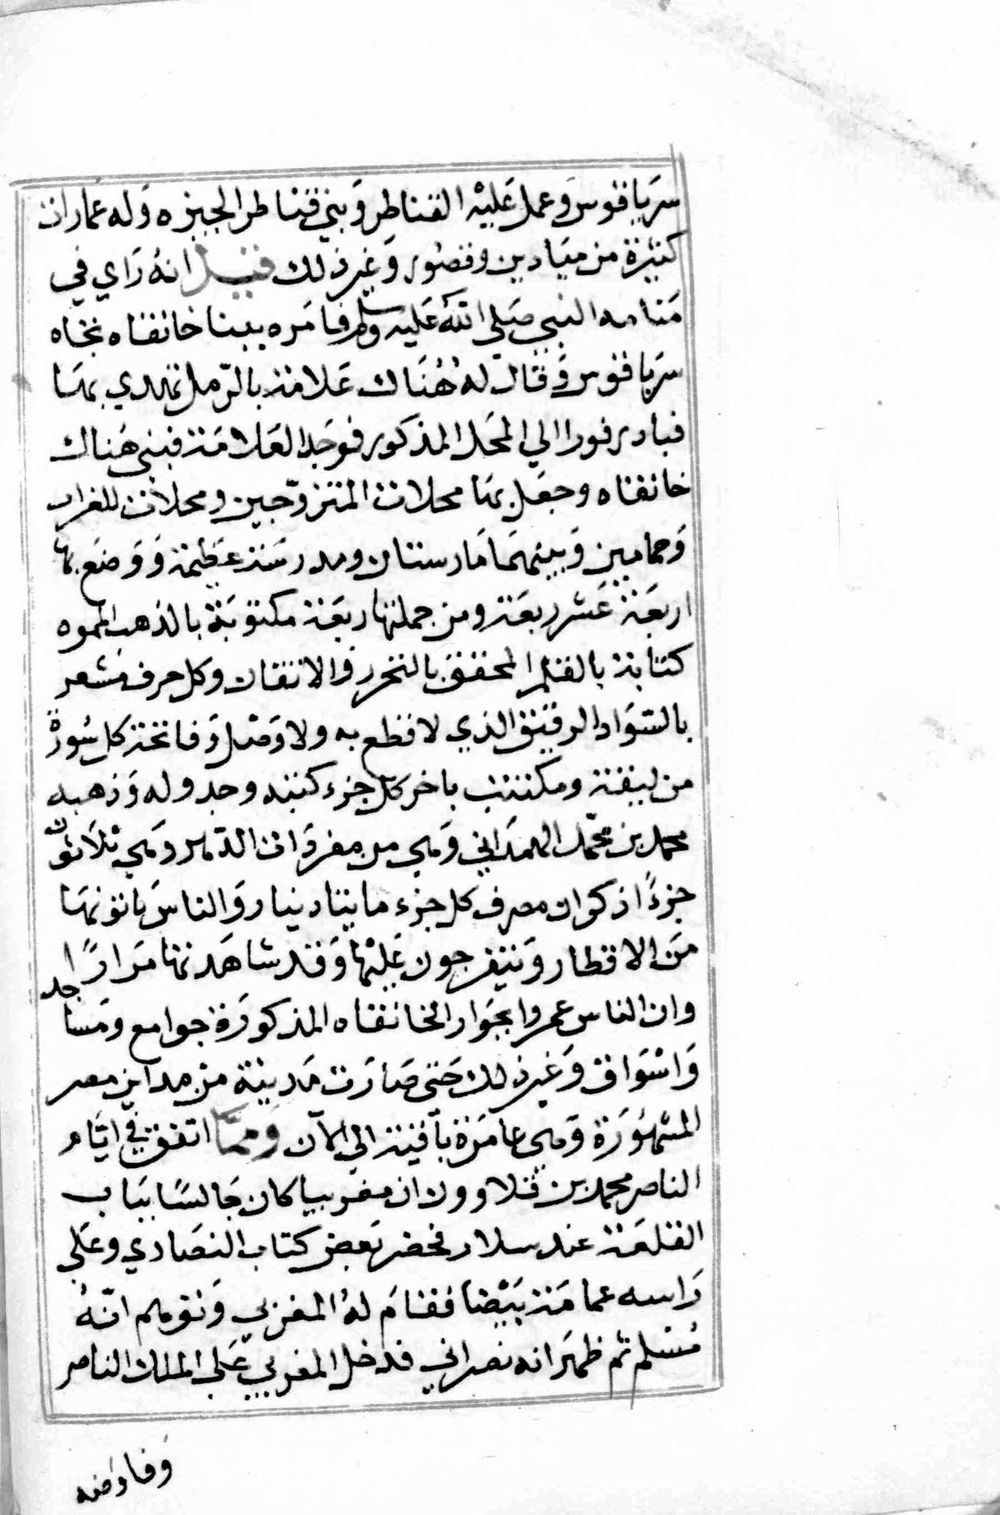 سرياقوس وعمل عليه القناطر وبني قناطر الجيزه وله عمارات
كثيرة من ميادين وقصور وغير ذلك قيل انه راي في
منامه النبي صلي الله عليه وسلم فامره ببنا خانقاه تجاه
سرياقوس وقال له هناك علامة بالرمل تهدي بها
فبادر فورا الي المحل المذكور فوجد العلامة فبني هناك
خانقاه وجعل بها محلات المتزوجين ومحلات للغراب
وحمامين وبينهما مارستان ومدرسة عظيمة ووضع بها
اربعة عشر ربعة ومن جملتها ربعة مكتوبة بالذهب المموه
كتابة بالقلم المحقق بالتحرر والاتقان وكل حرف مشعر
بالسواد الرقيق الذي لا قطع به ولا وصل وفاتحة كل سورة
من ليقة ومكتتب باخر كل جزء كتبه وجدوله وذهبه
محمد بن محمد الهمداني وهي من مفردات الدهر وهي ثلاثون
جزءا ذكروا ان مصرف كل جزء مايتا دينار والناس ياتونها
من الاقطار ويتفرجون عليها وقد شاهدتها مرارا
وان الناس عمروا بجوار الخانقاه المذكورة جوامع ومساجد
واسواق وغير ذلك حتى صارت مدينة من مداين مصر
المشهورة وهي عامرة باقية الي الآن ومما اتفق في ايام
الناصر محمد بن قلاوون ان مغربيا كان جالسا بباب
القلعة عند سلار فحضر بعض كتاب النصاري وعلي
راسه عمامة بيضا فقام له المغربي وتوهم انه
مسلم ثم ظهر انه نصراني فدخل المغربي علي الملك الناصر
وفاوضه